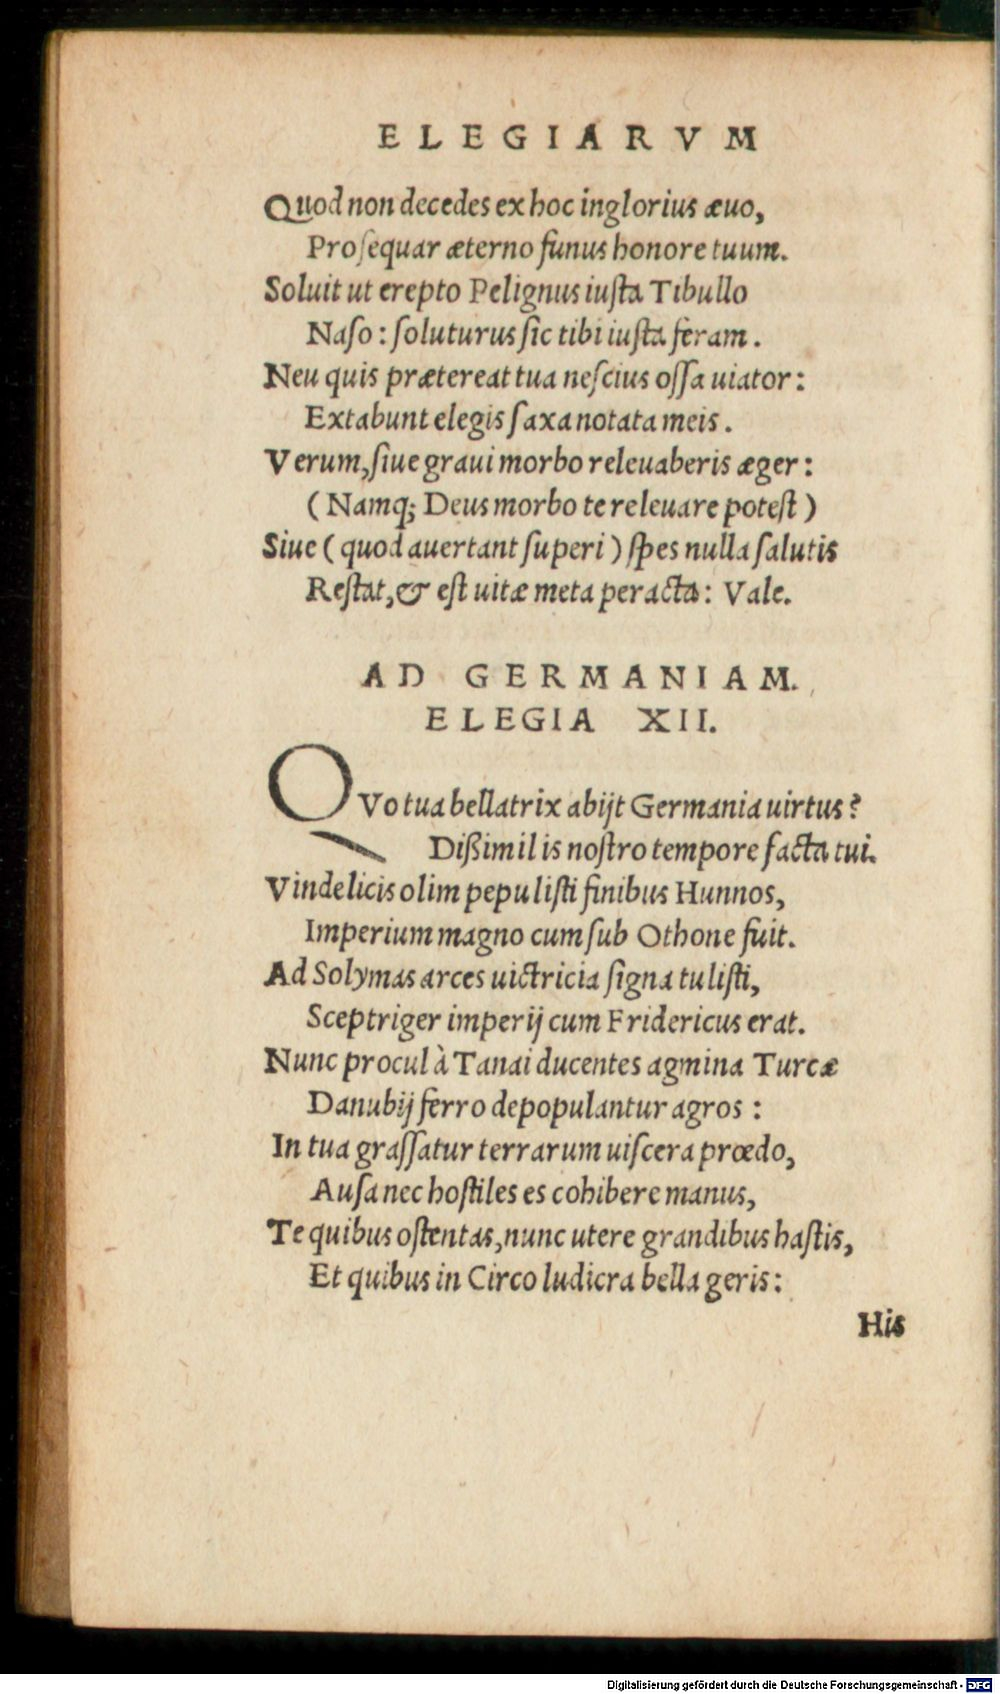 ELEGIARVM
Quod non decedes ex hoc inglorius æuo,
Proſequar æterno funus honore tuum.
Soluit ut erepto Pelignus iuſta Tibullo
Naſo: ſoluturus ſic tibi iuſta feram.
Neu quis prætereat tua neſcius oſſa uiator:
Extabunt elegis ſaxa notata meis.
Verum, ſiue graui morbo releuaberis æger:
(Namq; Deus morbo te releuare poteſt)
Siue (quod auertant ſuperi) ſpes nulla ſalutis
Reſtat, & eſt uitæ meta peracta: Vale.
AD GERMANIAM.
ELEGIA XII.
QVo tua bellatrix abijt Germania uirtus?
Dißimilis noſtro tempore facta tui.
Vindelicis olim pepuliſti finibus Hunnos,
Imperium magno cum ſub Othone fuit.
Ad Solymas arces uictricia ſigna tuliſti,
Sceptriger imperij cum Fridericus erat.
Nunc procul à Tanai ducentes agmina Turcæ
Danubij ferro depopulantur agros:
In tua graſſatur terrarum uiſcera prœdo,
Auſa nec hoſtiles es cohibere manus,
Te quibus oſtentas, nunc utere grandibus haſtis,
Et quibus in Circo ludicra bella geris:
His
Digitalisierung gefördert durch die Deutsche Forschungsgemeinschaft - DFG